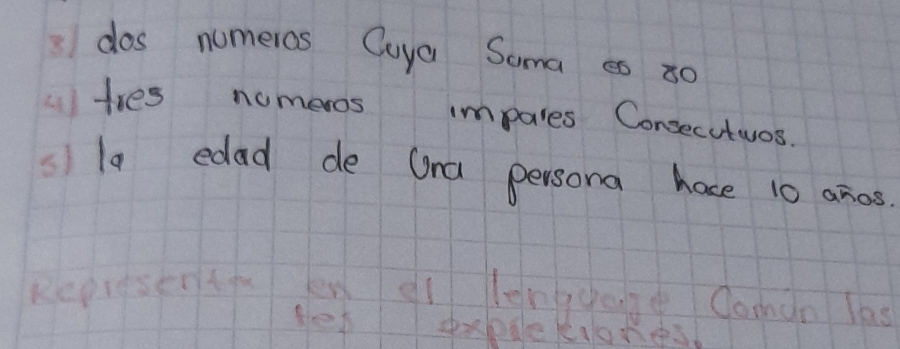 3) dos numeros Cuya Suma es 80
4) tres numeros impares Consecutivos.
5) la edad de una persona hace 10 años.
Represente en el lenguaje Comun las
expresiones.